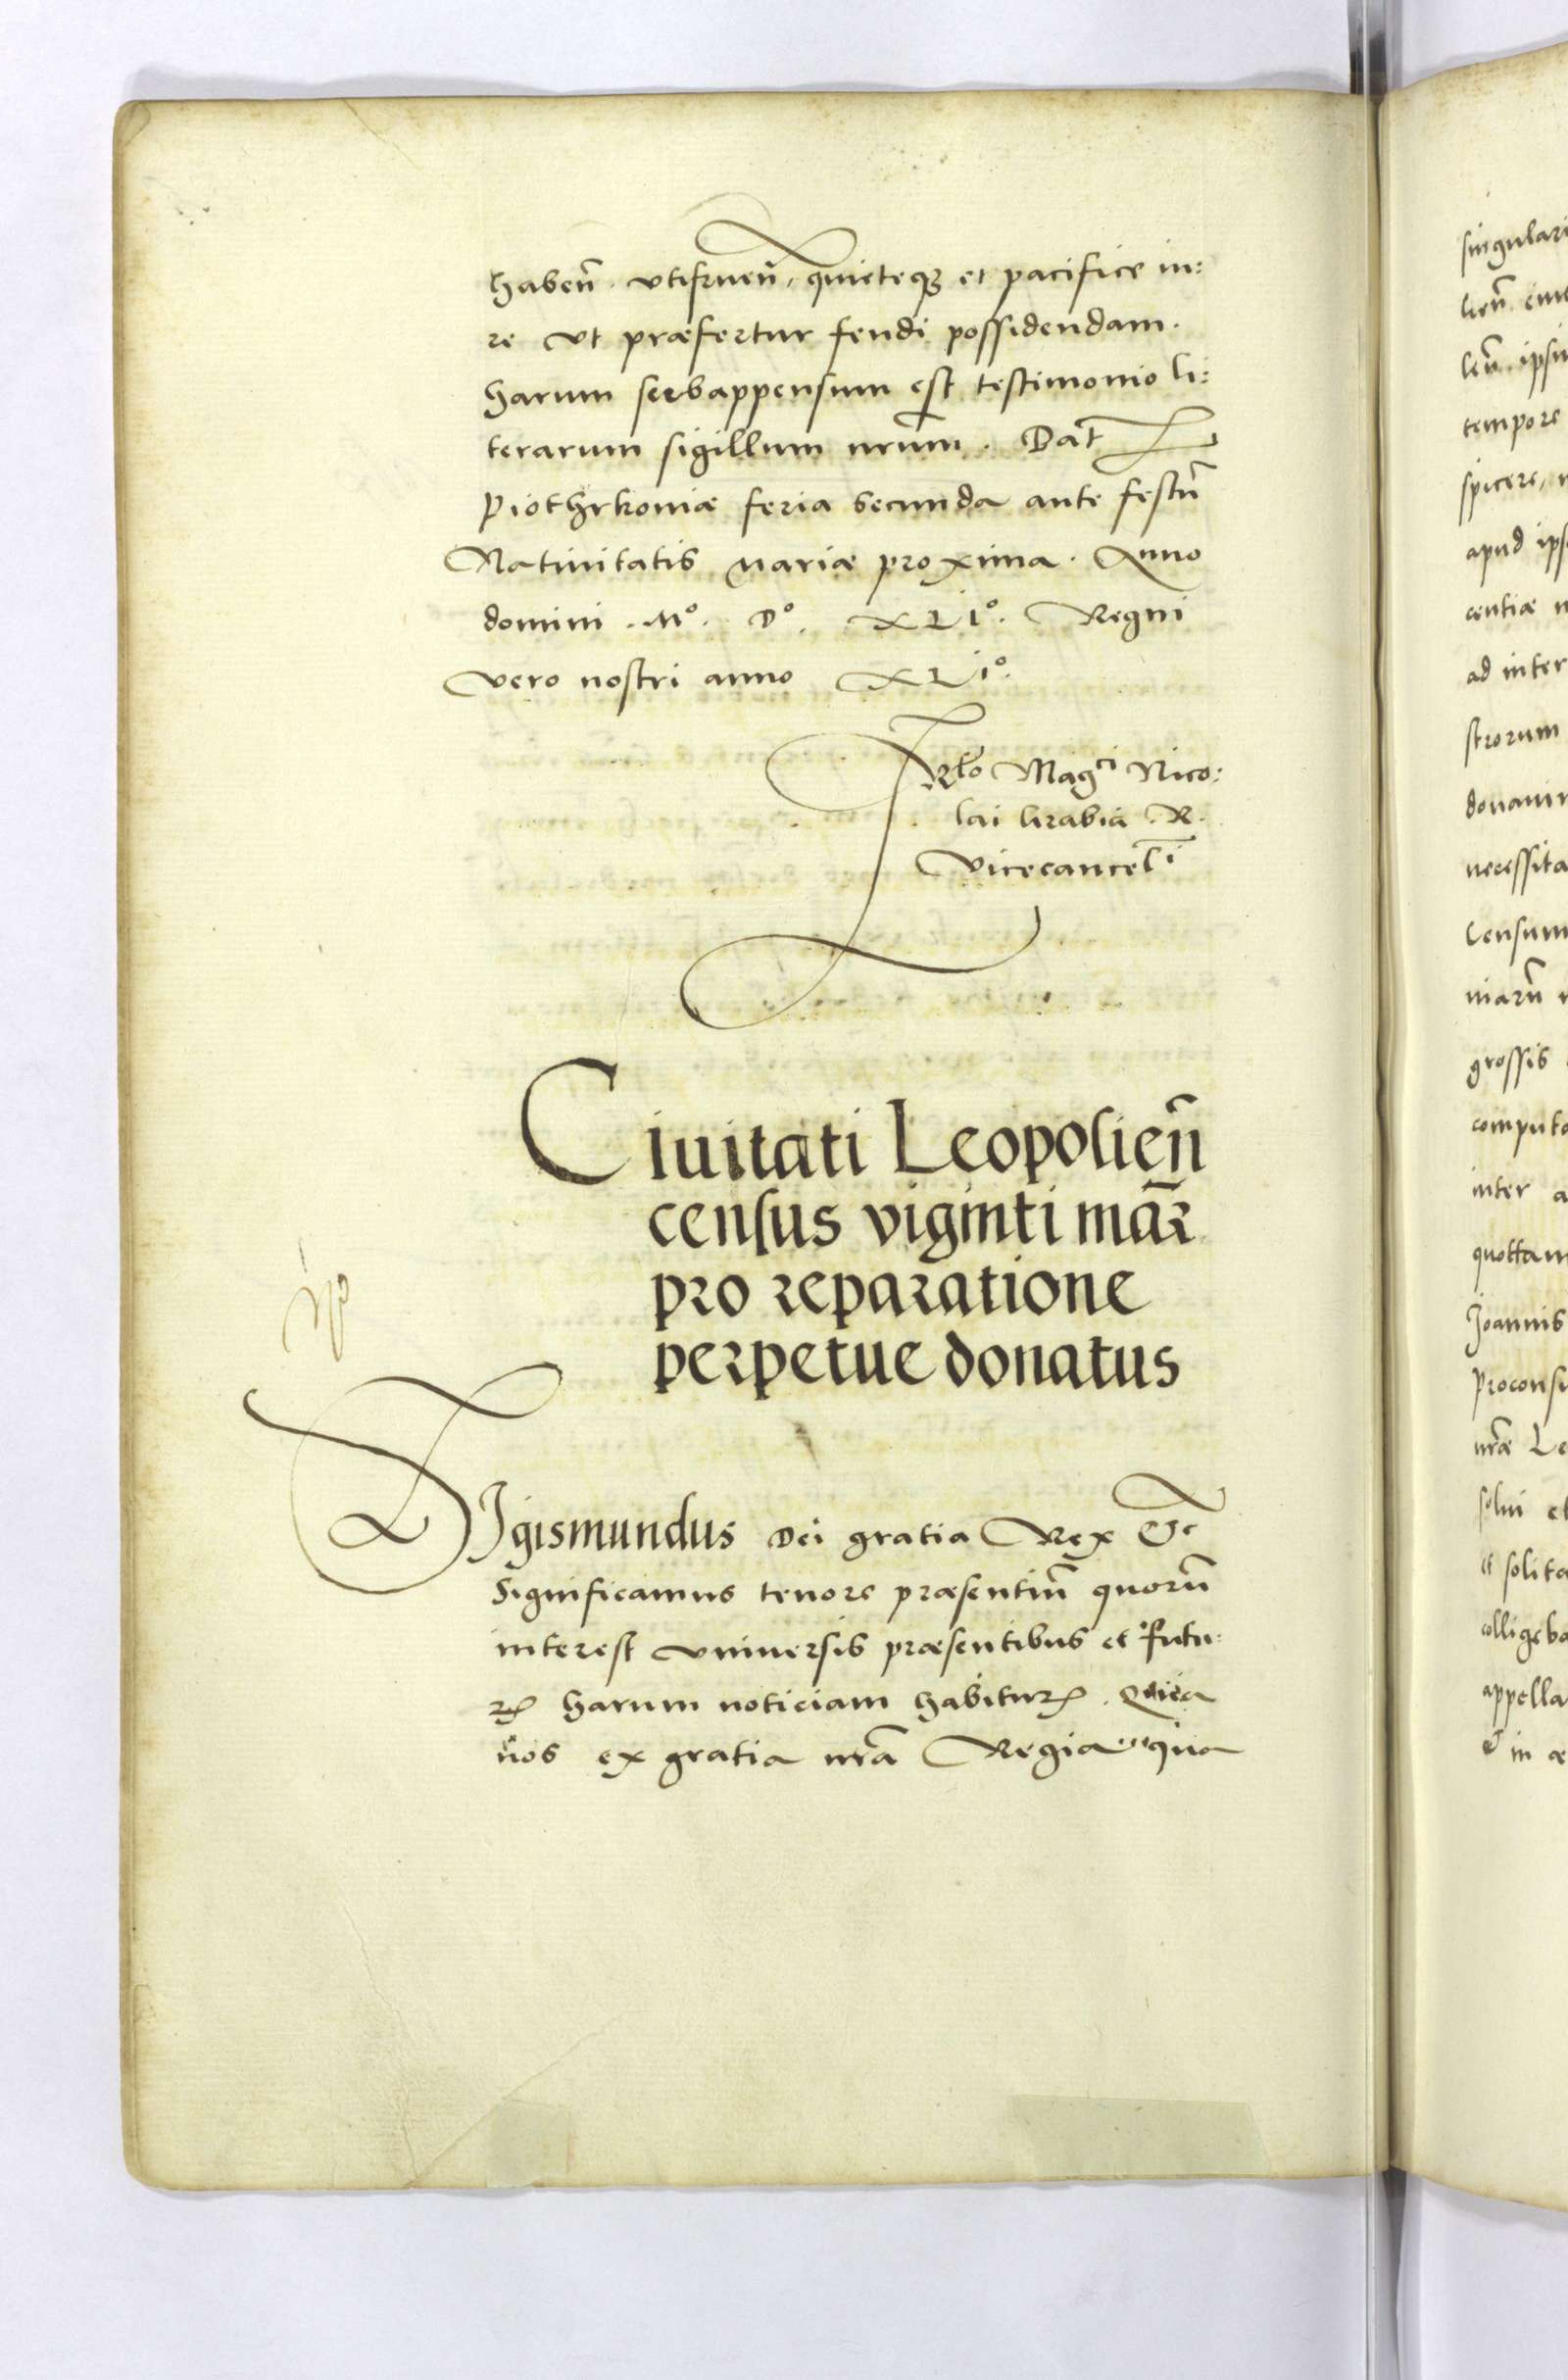 habeñ. vtifrueñ, quieteqȝ et pacifice iu:
re vt præfertur feudi possidendam.
harum subappensum est testimonio li:
terarum sigillum nr̃um. Dat̃
Piothrkoniæ feria secunda ante festũ
Natiuitatis Mariæ proxima. Anno
domini . Mº. Dº. XLIº. Regni
vero nostri anno XLIº.
Rl̃o Mag^ci Nico:
lai Grabia R.
Vicecancel^i
Ciuitati Leopolieñ
census viginti mar̃
pro reparatione
perpetue donatus
SIgismundus Dei gratia Rex &c
Significamus tenore præsentiũ quorũ
interest vniuersis præsentibus et futu:
rꝭ harum noticiam habiturꝭ. Quia
nos ex gratia nr̃a Regia qua
singulari
lieñ ciui
leñ ipsiu
tempore
spicere,
apud ips
centiæ n
ad inter
strorum
donauim
necessita
Censum
niarũ
grossis
computa
inter a
quottan
Joannis
Proconsu
nr̃æ Le
solui et
et solita
colligeba
appella
& in æ